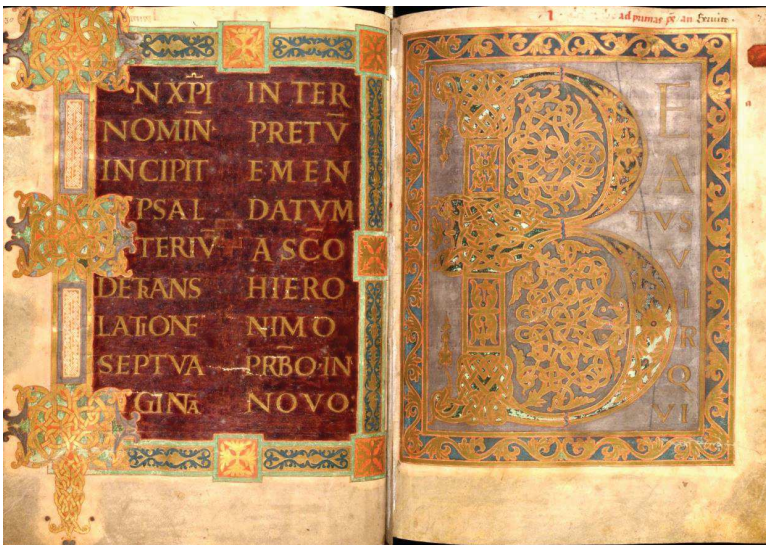 IN XPI
NOMIN·
INCIPIT
PSAL
TERIV
DE TRANS
LATIONE
SEPTVA
GINTA
IN TER
PRETV
EMEN
DATVM
A SCO
HIERO
NIMO
PRBO·IN
NOVO·
ad primas
B
E
A
TVS
V
I
R
Q
VI